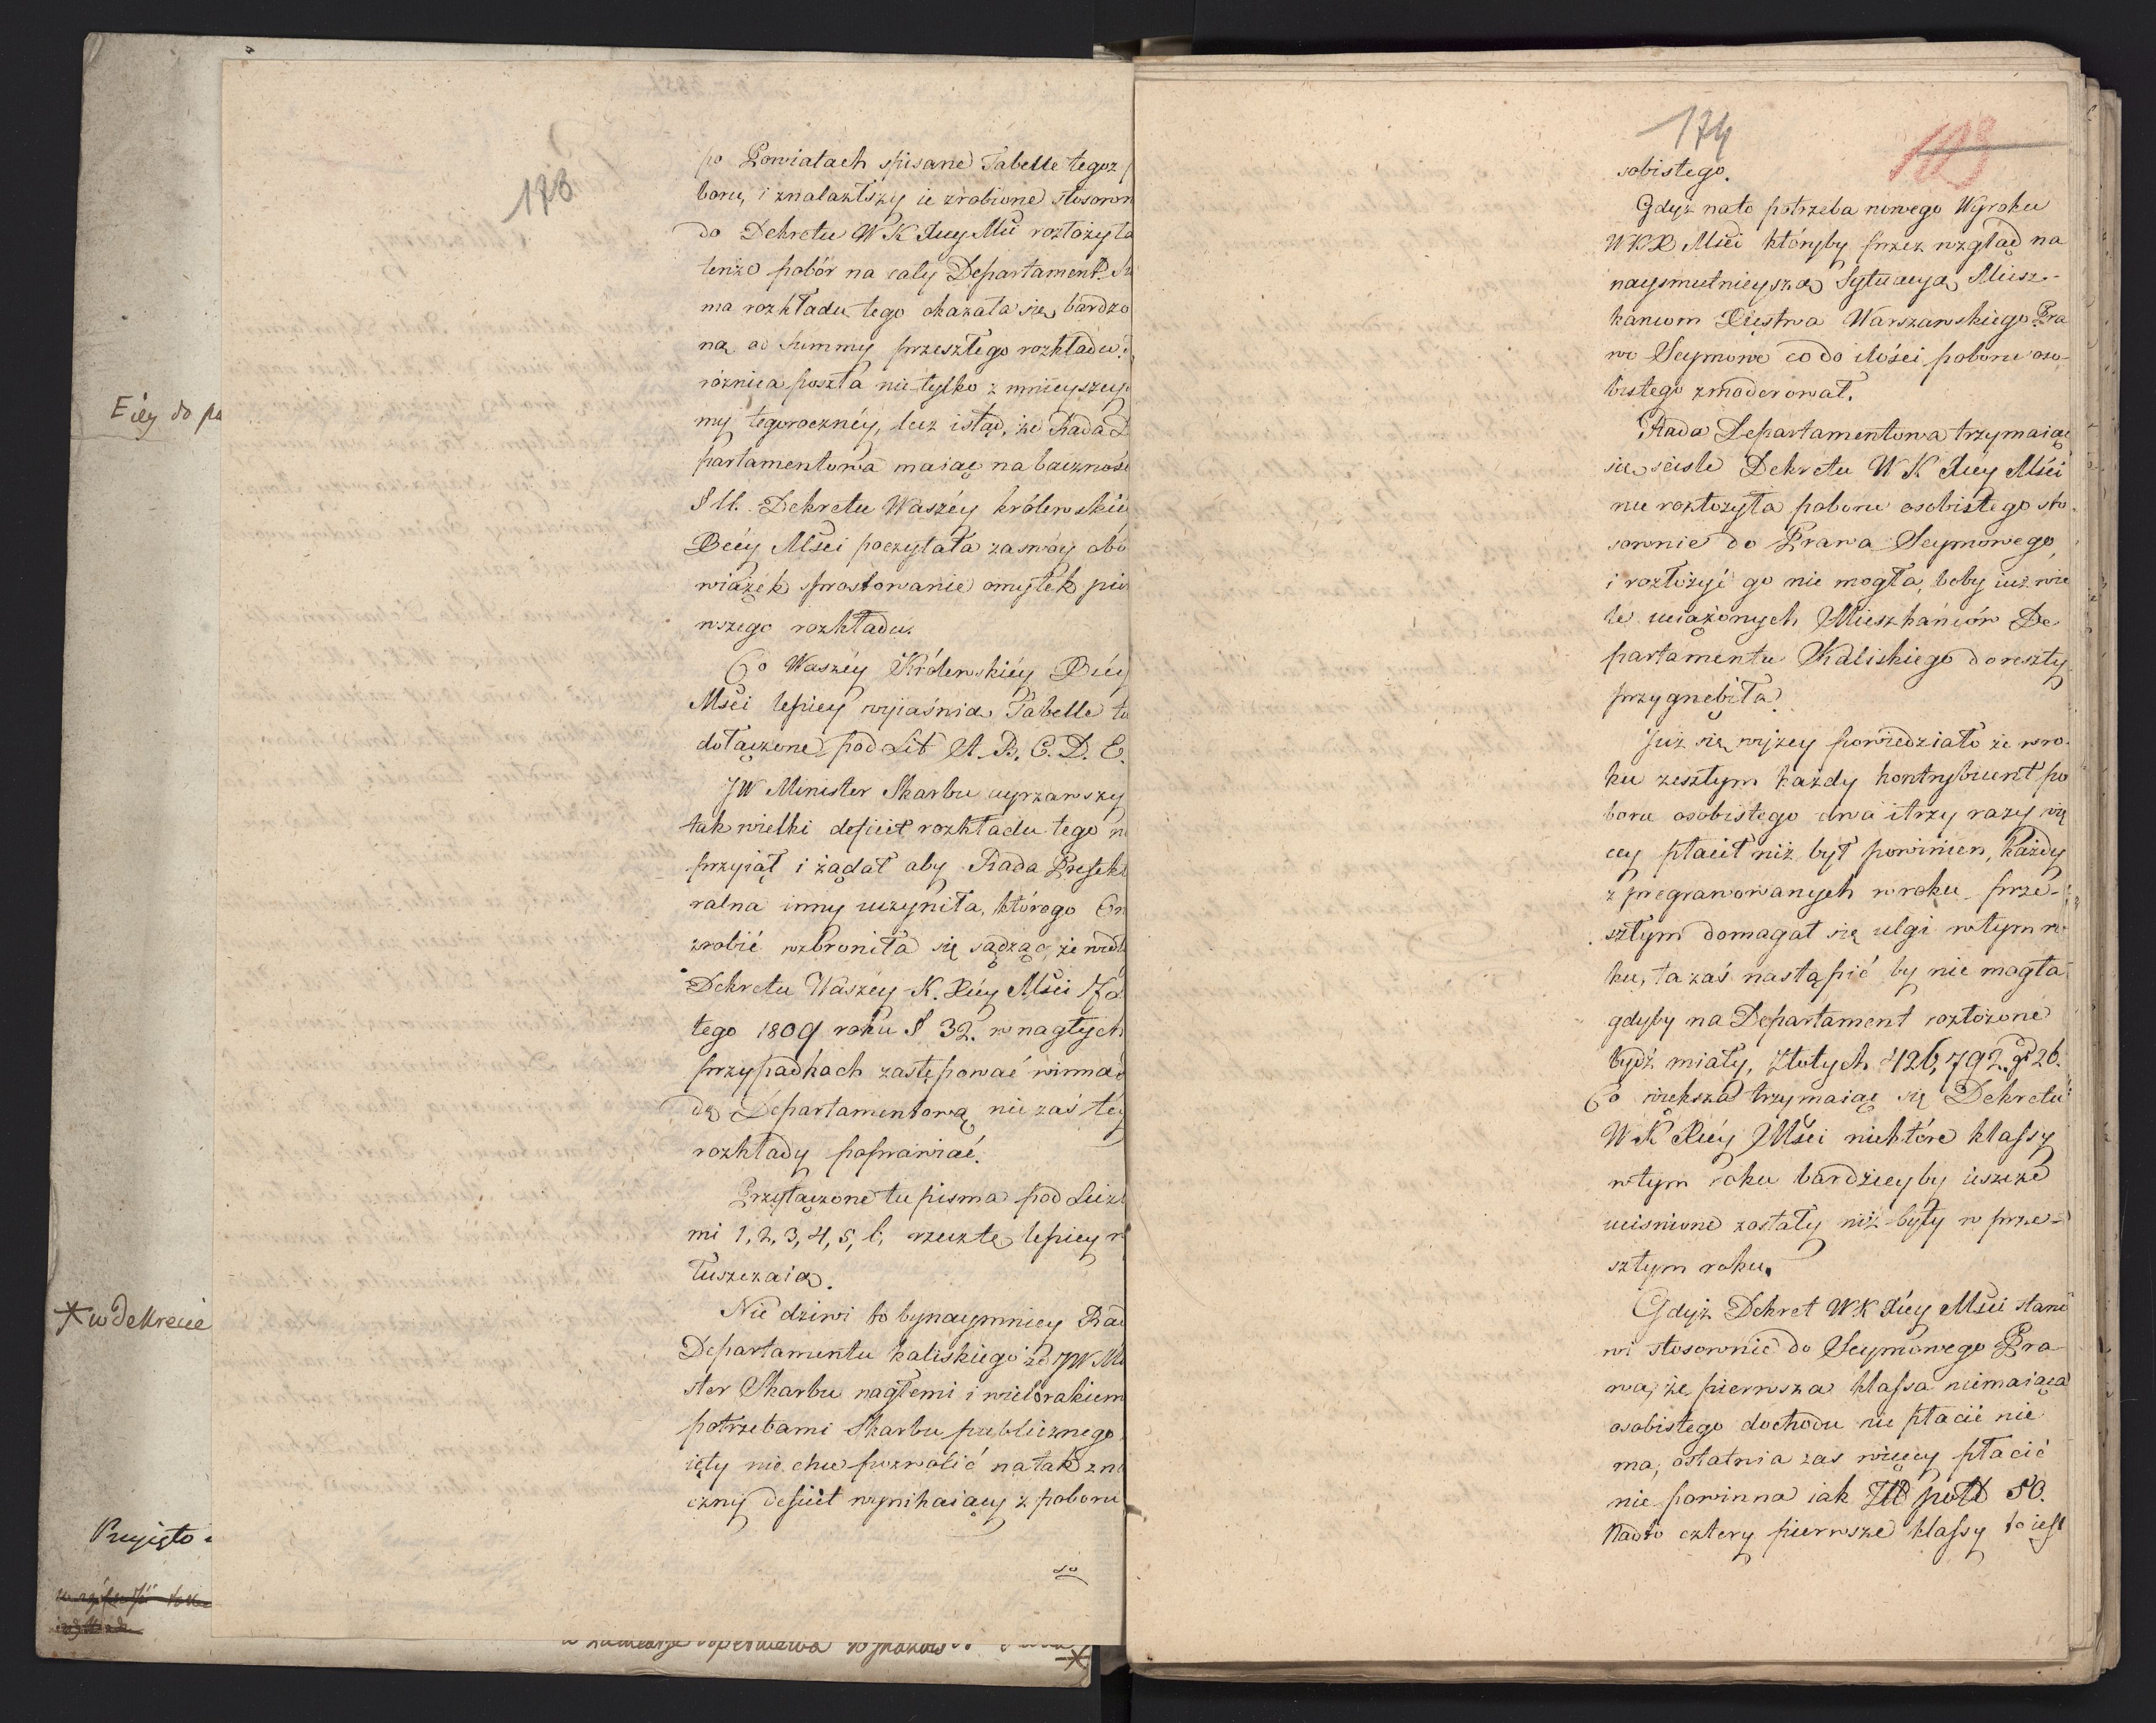 173
po Powiatach spisane Tabelle tegoż p
boru, i znalazłszy ie zrobione stosown
do Dekretu WK Xcey Mci rozłożyła
tenże pobór na cały Departament. Su
ma rozkładu tego okazała się bardzo
ną od Summy przeszłego rozkładu.
różnica poszła nie tylko z mnieyszey
my tegoroczney, lecz i stąd, że Rada D
partamentowa maiąc na baczności
§ 11. Dekretu Waszéy królewskiéy
Xcéy Mści poczytała za swóy obo
wiązek sprostowanie omyłek pier
wszego rozkładu.
Co Waszéy Królewskiéy Xcéy
Mści lepiey wyiaśnia Tabelle tu
dołączone pod Lit A. B. C. D. E.
JW Minister Skarbu uyrzawszy
tak wielki deficit rozkładu tego n
przyiął i żądał aby Rada Prefekt
ralna inny uczyniła, którego
zrobić wzbroniła się sądząc, że wedł
Dekretu Waszéy K. Xcéy Mści
tego 1809 roku § 32. w nagłych
przypadkach zastępować winna
dę Departamentową, nie zaś téy
rozkłady poprawiać.
Przyłączone tu pisma pod Liczb
mi 1, 2, 3, 4, 5, 6, rzecz tę lepiey
tuszczaią.
Nie dziwi to bynaymniey Rad
Departamentu kaliskiego że JW Mi
ster Skarbu nagłemi i wielorakiem
potrzebami Skarbu publicznego
ięty nie chce pozwolić na tak zna
czny deficit wynikaiący z poboru
so
Eiey do po
* w dekrecie
Przyięto
*
174
103
sobistego.
Gdyż na to potrzeba nowego Wyroku
WKX Mści któryby przez wzgląd na
naysmutnieyszą Sytuacyą Miesz-
kańcom Xięstwa Warszawskiego Pra
wo Seymowe co do ilości poboru oso-
bistego zmoderował.
Rada Departamentowa trzymaiąc
się ściśle Dekretu WK Xcéy Mści
nie rozłożyła poboru osobistego sto
sownie do Prawa Seymowego,
i rozłożyć go nie mogła, boby iuż wie
le uciążonych Mieszkańców De
partamentu Kaliskiego do reszty
przygnębiła.
Już się wyżey powiedziało że w ro-
ku zeszłym każdy kontrybuent po
boru osobistego dwa i trzy razy wię
cey płacił niż był powinien, każdy
z pregrawowanych w roku prze-
szłym domagał się ulgi w tym ro
ku, ta zaś nastąpić by nie mogła
gdyby na Departament rozłożone
bydź miały, Złotych 426,792. gr 26.
Co większa trzymaiąc się Dekretu
WK Xcéy Mści niektóre klassy
w tym roku bardziey by ieszcze
uciśnione zostały niż były w prze-
szłym roku.
Gdyż Dekret WK Xcéy Mści stano
wi stosownie do Seymowego Pra-
wa, że pierwsza klassa niemaiąca
osobistego dochodu nic płacić nie
ma, ostatnia zaś więcy płacić
nie powinna iak Zło pol 50.
Nadto cztery pierwsze klassy to iest